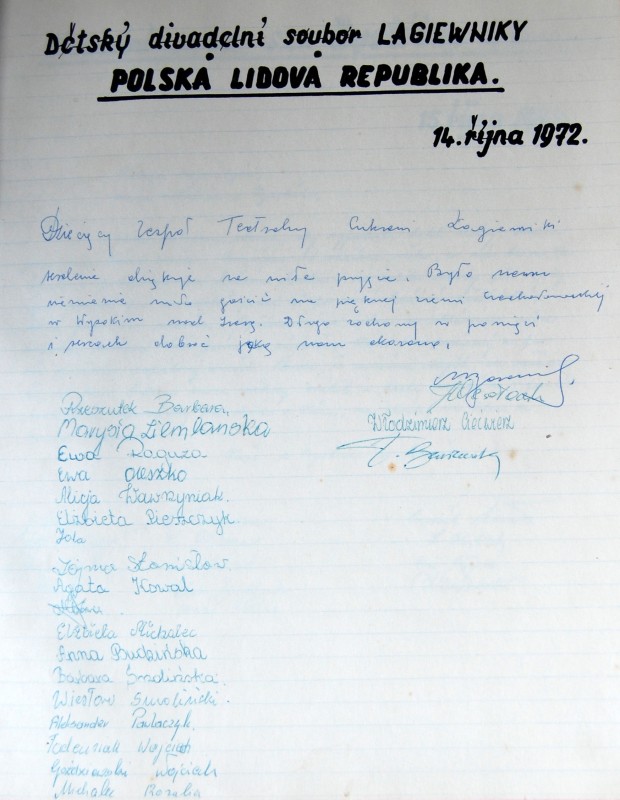 Dětský divadelní soubor LAGIEWNIKY
POLSKÁ LIDOVÁ REPUBLIKA.
14. října 1972.
Dziecięcy Zespół Teatralny Cukrowni Łagiewniki
serdecznie dziękuje za miłe przyjęcie. Było nam
niezmiernie miło gościć na pięknej ziemi czechosłowackiej
w Wysokim nad Izerą. Długo zachowamy w pamięci
i sercach dobroć jaką nam okazano.
Rzeszutek Barbara
Marysia Ziemlańska
Włodzimierz Ciećwierz
Ewa Raguza
Ewa Oleszko
Alicja Wawrzyniak.
Elżbieta Pieszczyk.
Jola
Stanisław.
Agata Kowal
Elżbieta Michalec
Anna Budzińska
Barbara
Wiesław Smoliński.
Aleksander Pawlaczyk.
Wojciech
Wojciech
Michalec Rozalia